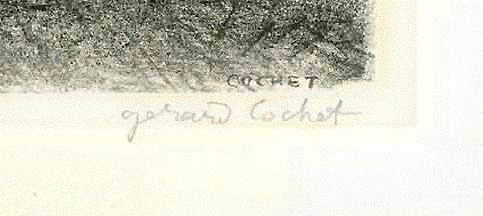 COCHET
gerard Cochet